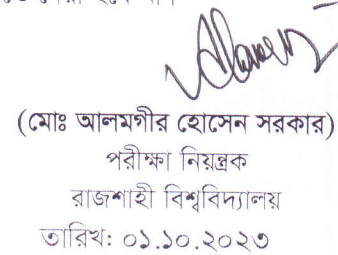 (মোঃ আলমগীর হোসেন সরকার)
পরীক্ষা নিয়ন্ত্রক
রাজশাহী বিশ্ববিদ্যালয়
তারিখ: ০১.১০.২০২৩